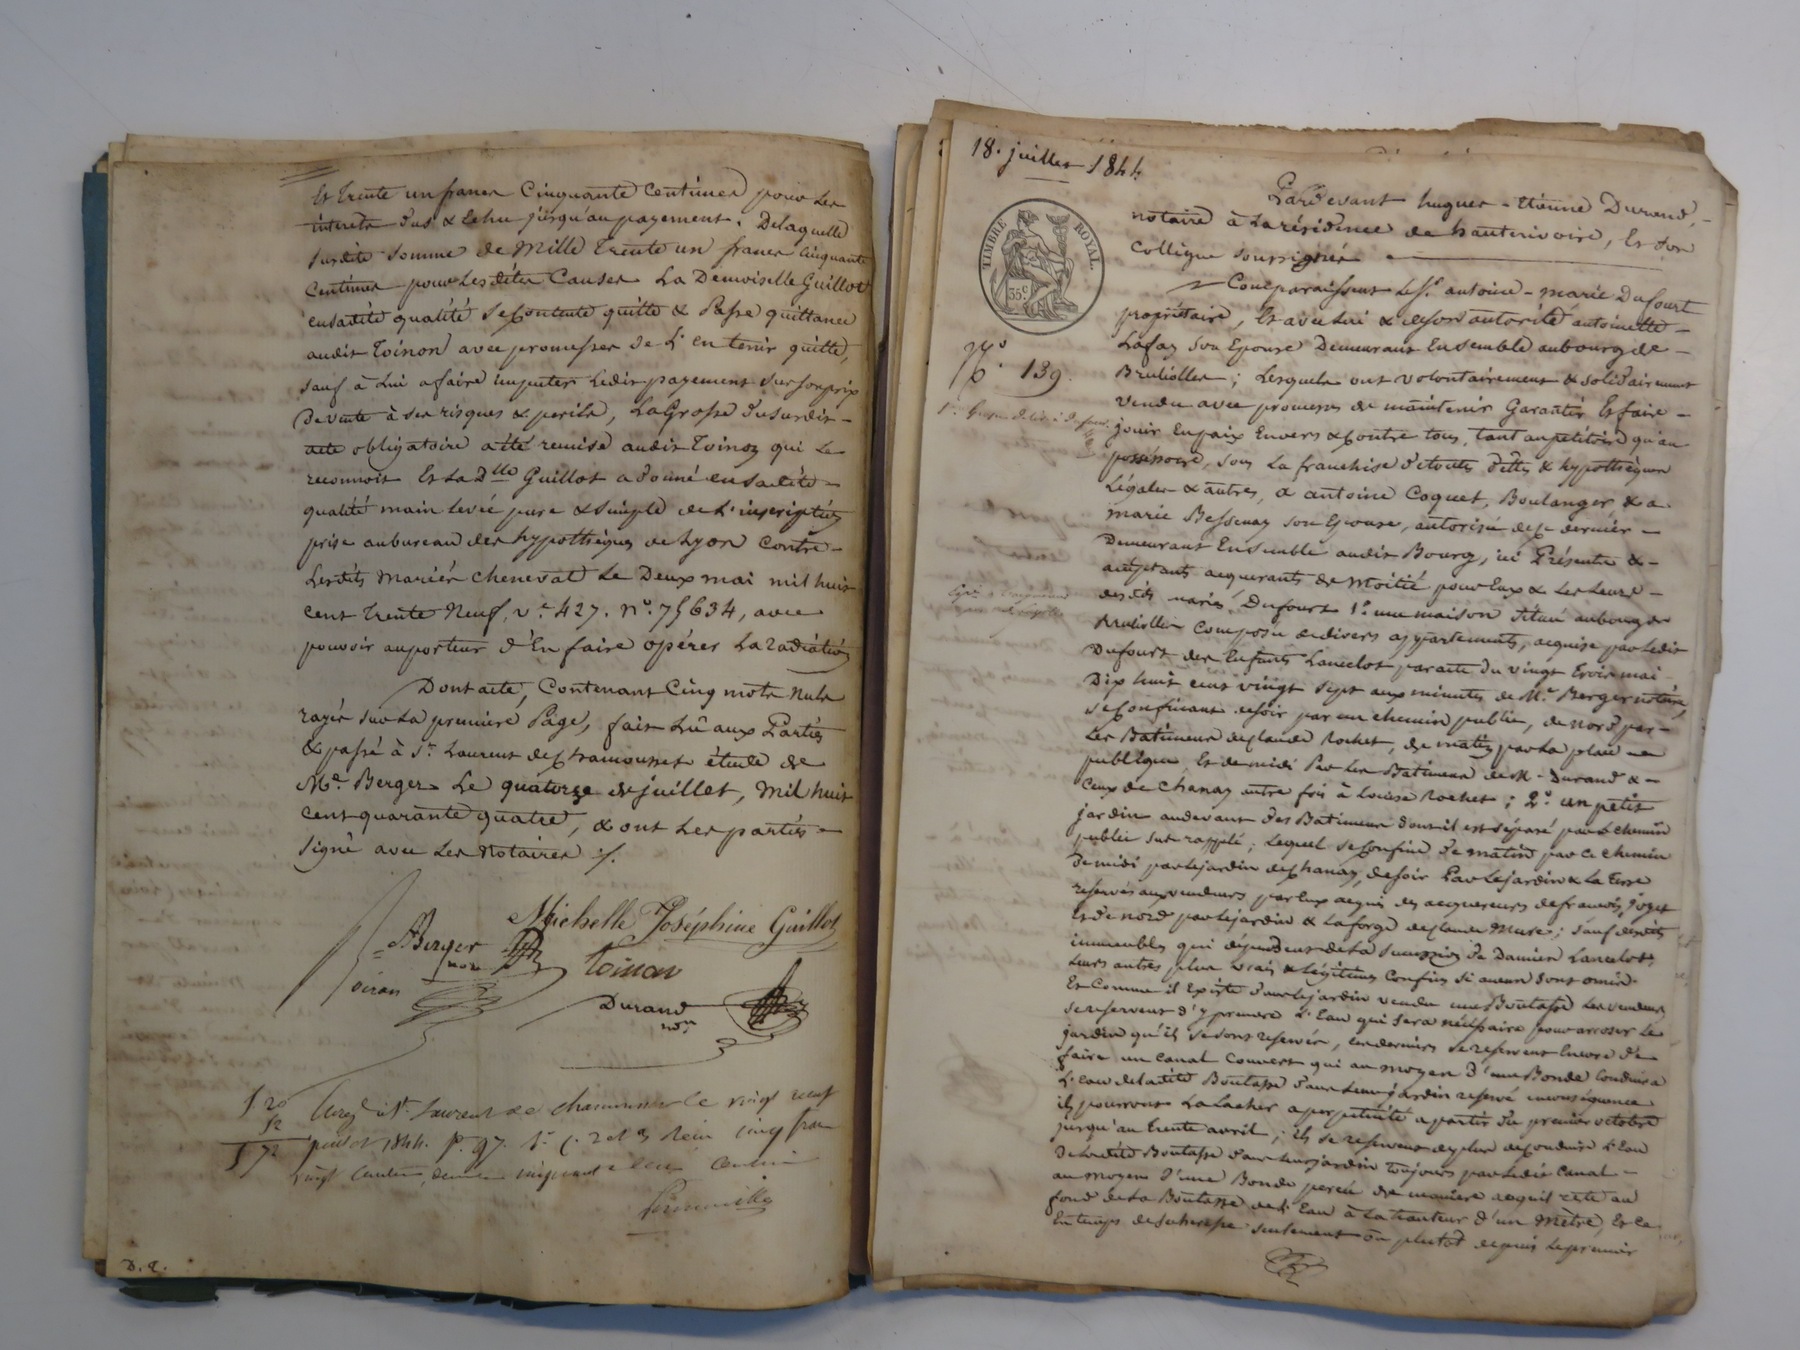 Et trente un francs Cinquante Centimes pour Les
interets dus & Echu jusqu'au payement. Delaquelle
susdite Somme de Mille trente un francs Cinquante
Centimes pour Lesdites Causes La Demoiselle Guillot
ensadite qualité Se Contente quitte & Passe quittance
audit Toinon avec promesses de L'en tenir quitte,
sauf à Lui a faire imputer Ledit payement sur Son prix
de vente à ses risques & perils, La Grosse du Susdit
acte obligatoire a été remise audit Toinon qui Le
reconnoit Et La Dlle Guillot a donné ensadite
qualité main levée pure & Simple de L'inscription
prise au bureau des hypothèques de Lyon Contre
Lesdits Mariés Chenevat Le Deux mai mil huit
cent trente Neuf, v.e 427. n.o 75634, avec
pouvoir au porteur d'En faire opérer La radiation
Dont acte, Contenant Cinq mots Nuls
rayés Sur La première Page, fait Lû aux Parties
& passé à St. Laurent de Chamousset étude de
Me. Berger Le quatorze de juillet, Mil huit
cent quarante quatre, & ont Les parties
Signé avec Les Notaires ./.
Michelle Joséphine Guillot
Berger
nore
Toinon
Durand
nore
5 20
52
5 72
Enreg. à St. Laurent de Chamousset Le vingt neuf
juillet 1844. f.o 97. R.o C. 2 et 3 Reçu cinq francs
vingt Centimes, decime cinquante deux Centimes
D. 2.
18. juillet 1844
TIMBRE ROYAL
35 c
No. 139.
Pardevant hugues-Etienne Durand,
notaire à La résidence de hauterivoire, Et Son
Collègue Soussignés
Comparaissent Le Sr. antoine-marie Dufourt
propriétaire, Et avec Lui & de Son autorité antoinette
Lafay Son Epouse Demeurant Ensemble au bourg de
Brullioles; Lesquels ont volontairement & Solidairement
vendu avec promesses de maintenir Garantir Et faire
jouir En paix Envers & Contre tous, tant au petitoire qu'au
possessoire, Sous La franchise de toutes dettes & hypothèques
Légales & autres, a antoine Coquet, Boulanger, & a
marie Bessenay Son Epouse, autorisée de Ce dernier
Demeurant Ensemble audit Bourg, ici Présents &
acceptants acquerants de Moitié pour Eux & Les Leurs
desdits mariés Dufourt 1.o une maison Située au bourg de
Brullioles Composée de divers appartements, acquise par Ledit
Dufourt des Enfants Lancelot par acte du vingt trois mai
Dix huit cent vingt Sept aux minutes de Me. Berger notaire,
Se Confinant de soir par un chemin public, de nord par
Les Batiments de Claude Rochet, de matin par La place
publique Et de midi Par Les Batiments de M. Durand &
Ceux de Chanay autre fois à Louise Rochet; 2.o un petit
jardin audevant des Batiments dont il est séparé par Le chemin
public Sus rappelé; Lequel Se Confine de matin par Ce chemin
de midi par Le jardin de Chanay, de soir Par Le jardin & La terre
reservés aux vendeurs par Eux acquis des acquereurs de francois
Et de nord par Le jardin & La forge de Claude Mure; Sauf desdits
immeubles qui dépendent de La Succession de Damien Lancelot
Leurs autres plus vrais & Légitimes Confins Si aucun Sont omis
Et Comme il Existe dans Le jardin vendu une Boutasse Les vendeurs
Se reservent d'y prendre L'Eau qui Sera nécessaire pour arroser Le
jardin qu'ils Se sont reservés, Ces derniers Se reservent Encore de
faire un Canal Couvert qui au moyen d'une Bonde Conduira
L'eau de Ladite Boutasse dans Leur jardin reservé
ils pourront La Lacher a perpetuité a partir du premier octobre
jusqu'au trente avril; ils Se reservent de plus de Conduire L'Eau
de Ladite Boutasse dans Leur jardin toujours par Ledit Canal
au moyen d'une Bonde percée de manière a ce qu'il reste au
fond de La Boutasse de L'Eau à La hauteur d'un Mètre, Et Ce
En temps de Secheresse Seulement ou plutot depuis Le premier